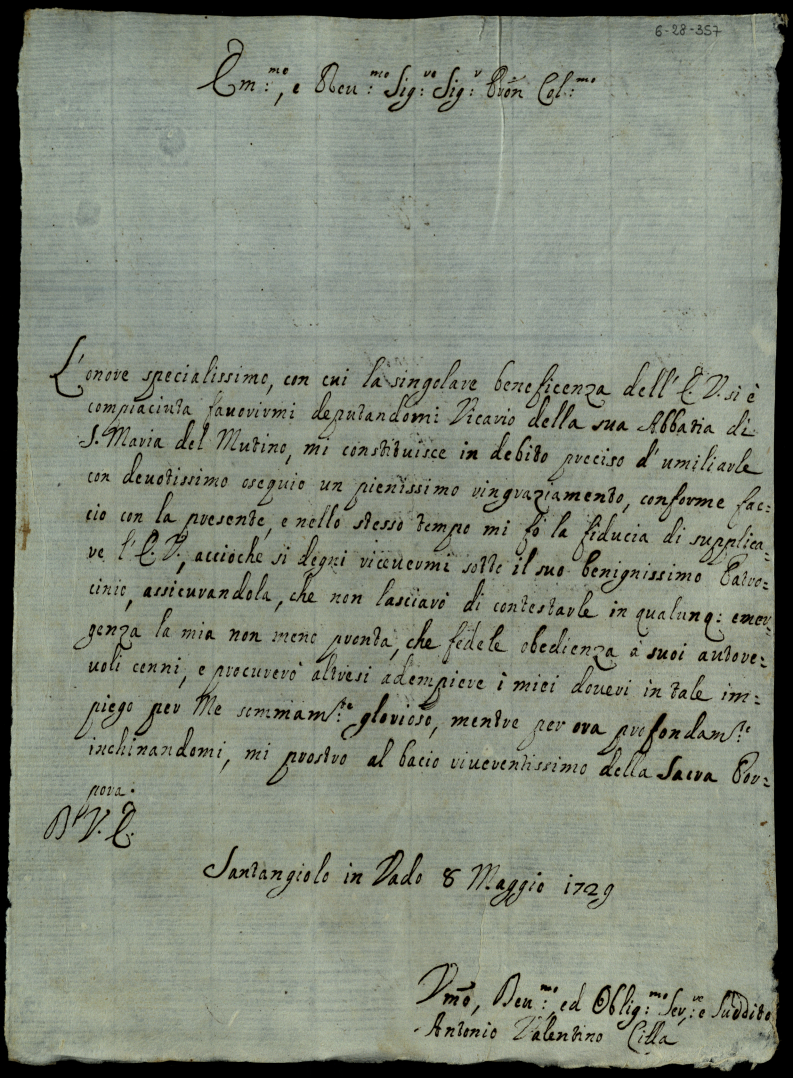 6-28-357
Em:mo, e Reu:mo Sig:re Sig:r Pron Col:mo
L'onore specialissimo, con cui la singolare beneficenza dell'E.V. si è
compiaciuta fauorirmi deputandomi Vicario della sua Abbatia di
S. Maria del Mutino, mi constituisce in debito preciso d'umiliarle
con deuotissimo osequio un pienissimo ringraziamento, conforme fac=
cio con la presente, e nello stesso tempo mi fò la fiducia di supplica=
re l'E.V., accioche si degni riceuermi sotto il suo benignissimo Patro=
cinio, assicurandola, che non lasciarò di contestarle in qualunq: emer=
genza la mia non meno pronta, che fedele obedienza a suoi autore=
uoli cenni, e procurerò altresi adempiere i miei doueri in tale im=
piego per Me sommam:te glorioso, mentre per ora profondam:te
inchinandomi, mi prostro al bacio riuerentissimo della Sacra Por=
pora.
D V. E.
Santangiolo in Vado 8 Maggio 1729
Vmo, Deu:mo, ed Oblig:mo Ser:re e Suddito
Antonio Valentino Cilla